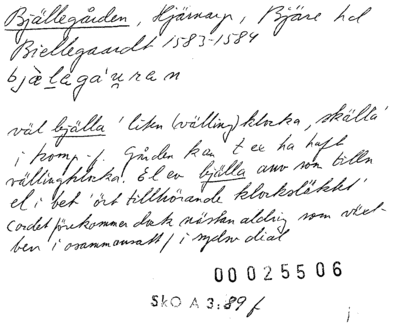 Bjällegården, Hjärnarp, Bjäre hd
Biellegaardt 1583-1584
bjælagáuran
väl bjälla 'liten (välling)klocka, skälla'
i komp.f. Gården kan t ex ha haft
vällingklocka. El ev bjälla anv som tilln
el i bet 'ört tillhörande klocksläktet'
(ordet förekommer dock nästan aldrig som växt-
ben i osammansatt / i sydsv dial
00025506
SkO A 3:89 f